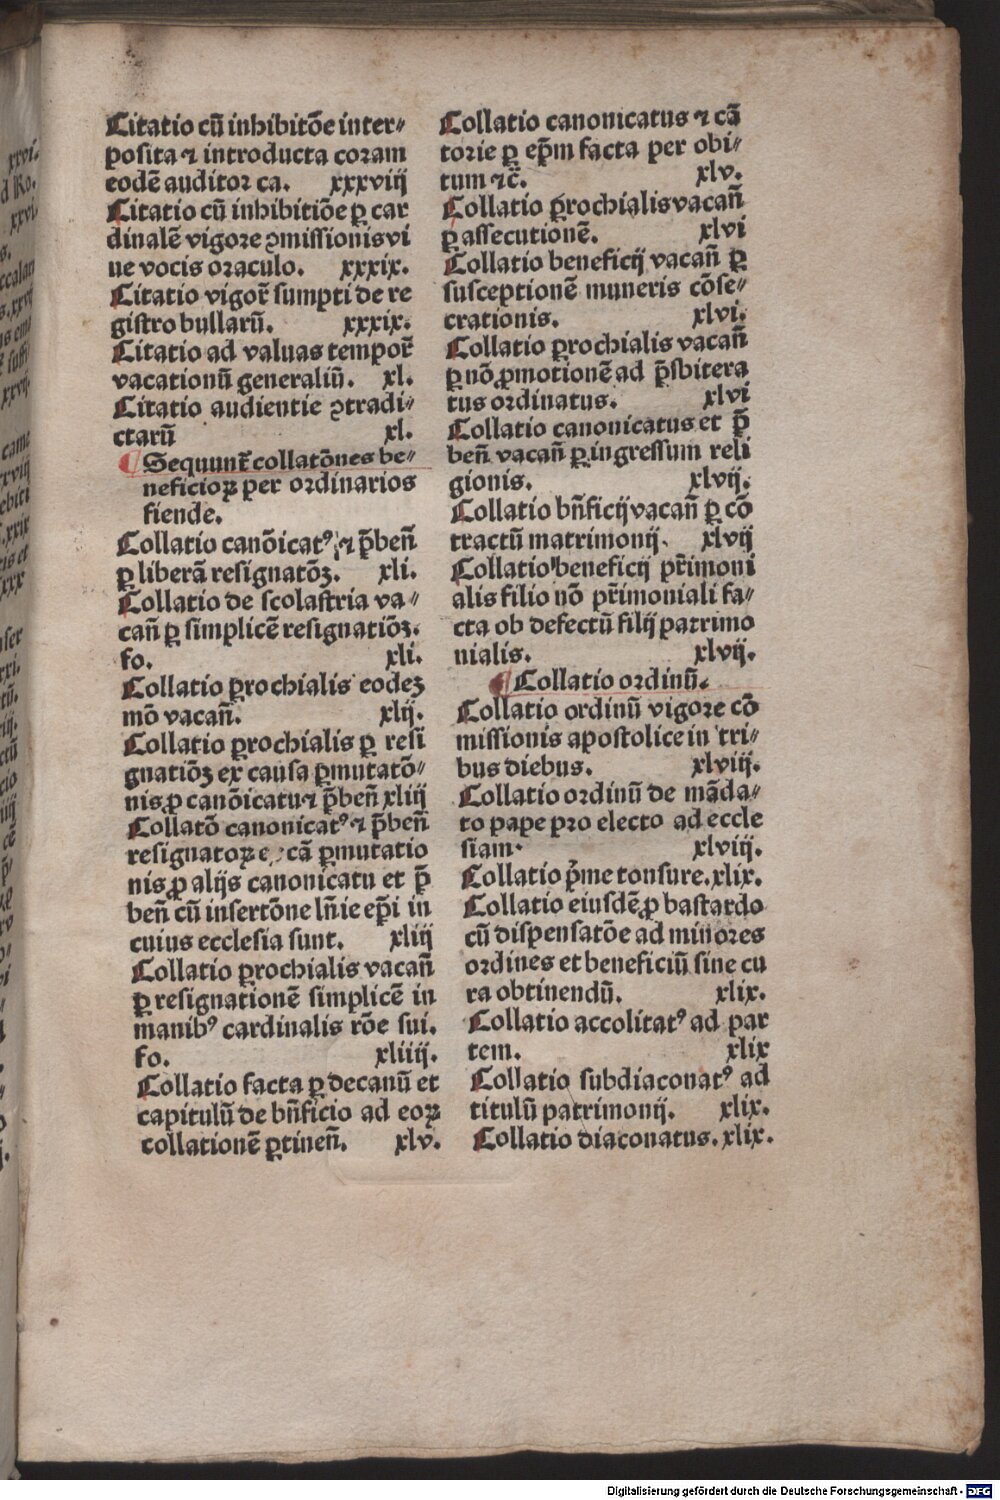 Citatio cū inhibitōe inter⸗
posita ⁊ introducta coram
eodē auditor ca. xxxviij
Citatio cū inhibitiōe ꝑ car
dinalē vigore ꝯmissionis vi
ue vocis oraculo. xxxix.
Citatio vigor̄ sumpti de re
gistro bullarū. xxxix.
Citatio ad valuas tempor̄
vacationū generaliū. xl.
Citatio audientie ꝯtradi⸗
ctarū xl.
¶ Sequunt̄ collatōnes be⸗
neficioꝝ per ordinarios
fiende.
Collatio canōicatꝰ ⁊ p̄ben̄
ꝑ liberā resignatōꝫ. xli.
Collatio de scolastria va⸗
can̄ ꝑ simplicē resignatiōꝫ.
fo. xli.
Collatio ꝑrochialis eodeꝫ
mō vacan̄. xlij.
Collatio ꝑrochialis ꝑ resi
gnatiōꝫ ex causa ꝑmutatō⸗
nis ꝓ canōicatu ⁊ p̄ben̄ xliij
Collatō canonicatꝰ ⁊ p̄ben̄
resignatoꝝ e cā ꝑmutatio
nis ꝓ alijs canonicatu et p̄
ben̄ cū insertōne ln̄ie ep̄i in
cuius ecclesia sunt. xliij
Collatio ꝑrochialis vacan̄
ꝑ resignationē simplicē in
manibꝰ cardinalis rōe sui.
fo. xliiij.
Collatio facta ꝑ decanū et
capitulū de bn̄ficio ad eoꝝ
collationē ꝑtinen̄. xlv.
Collatio canonicatus ⁊ cā
torie ꝑ ep̄m facta per obi⸗
tum ⁊c̄. xlv.
Collatio ꝑrochialis vacan̄
ꝑ assecutionē. xlvi
Collatio beneficij vacan̄ ꝑ
susceptionē muneris cōse⸗
crationis. xlvi.
Collatio ꝑrochialis vacan̄
ꝑ nō ꝓmotionē ad p̄sbitera
tus ordinatus. xlvi
Collatio canonicatus et p̄
ben̄ vacan̄ ꝑ ingressum reli
gionis. xlvij.
Collatio bn̄ficij vacan̄ ꝑ cō
tractū matrimonij. xlvij
Collatio beneficij pr̄imoni
alis filio nō pr̄imoniali fa⸗
cta ob defectū filij patrimo
nialis. xlvij.
¶ Collatio ordinū.
Collatio ordinū vigore cō
missionis apostolice in tri⸗
bus diebus. xlviij.
Collatio ordinū de māda⸗
to pape pro electo ad eccle
siam. xlviij.
Collatio p̄me tonsure. xlix.
Collatio eiusdē ꝓ bastardo
cū dispensatōe ad minores
ordines et beneficiū sine cu
ra obtinendū. xlix.
Collatio accolitatꝰ ad par
tem. xlix
Collatio subdiaconatꝰ ad
titulū patrimonij. xlix.
Collatio diaconatus. xlix.
Digitalisierung gefördert durch die Deutsche Forschungsgemeinschaft - DFG